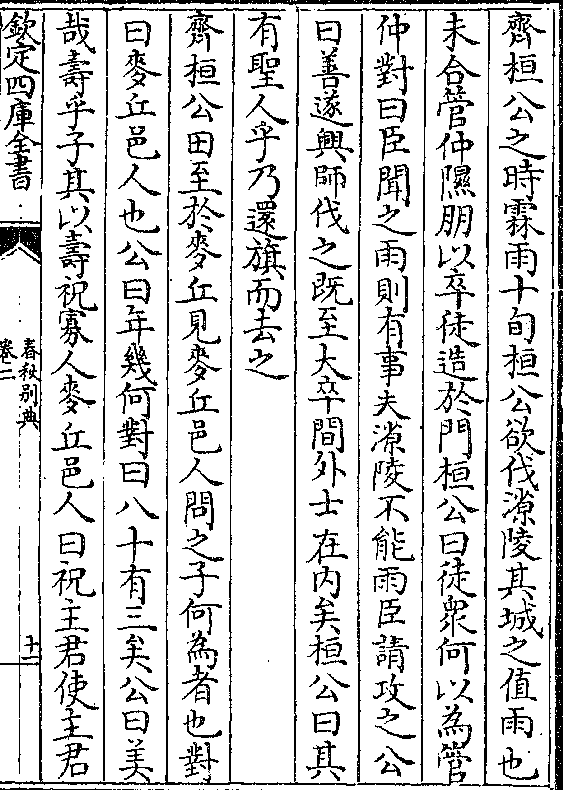 齊桓公之時霖雨十旬桓公欲伐漷陵其城之值雨也
未合管仲隰朋以卒徒造於門桓公曰徒衆何以為管
仲對曰臣聞之雨則有事夫漷陵不能雨臣請攻之公
曰善遂興師伐之既至大卒間外士在内矣桓公曰其
有聖人乎乃還旗而去之
齊桓公田至於麥丘見麥丘邑人問之子何為者也對
曰麥丘邑人也公曰年幾何對曰八十有三矣公曰美
哉壽乎子其以壽祝寡人麥丘邑人曰祝主君使主君
欽定四庫全書
春秋别典
卷二
十一